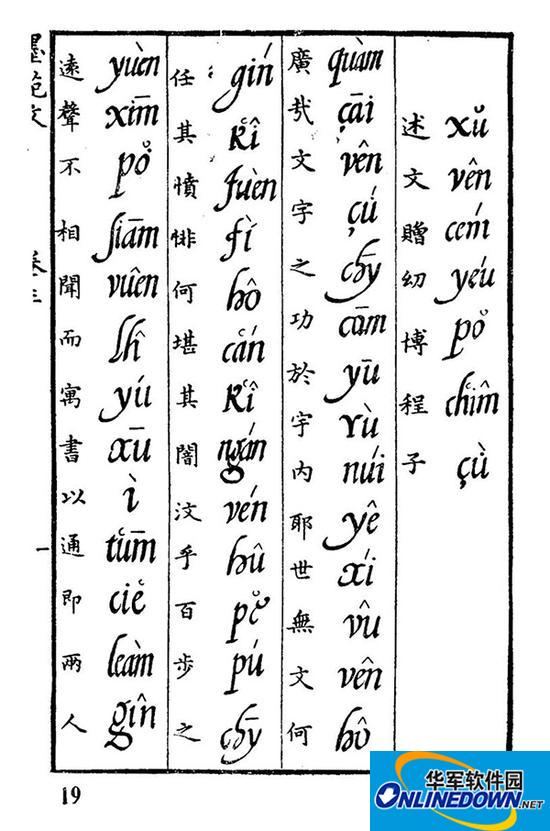 述文贈幼博程子
xŭ vên cém yéu pŏ chîm çù
廣哉文字之功於宇內耶世無文何
quàm çāi vên çú chȳ cūm yū yù núi yê xí vû vên hô
任其憤悱何堪其闇汶乎百步之
gín kʻî fuèn fì hô cʻán kʻî ngán vén hû pĕ pú chȳ
遠聲不相聞而寓書以通即兩人
yuèn xīm pŏ siām vuên lhî yú xū ì tʻūm ciĕ leàm gîn
卷三
一
19
华军软件园
ONLINEDOWN.NET